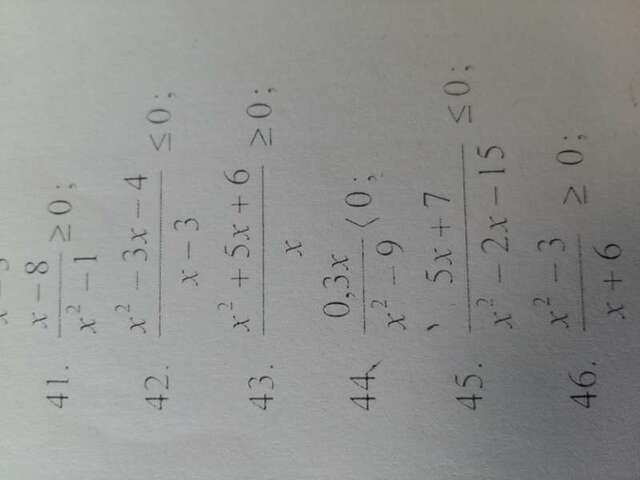 41. \frac{x-8}{x^2-1} ≥ 0;
42. \frac{x^2-3x-4}{x-3} ≤ 0;
43. \frac{x^2+5x+6}{x} ≥ 0;
44. \frac{0,3x}{x^2-9} ⟨ 0;
45. \frac{5x+7}{x^2-2x-15} ≤ 0;
46. \frac{x^2-3}{x+6} ≥ 0;